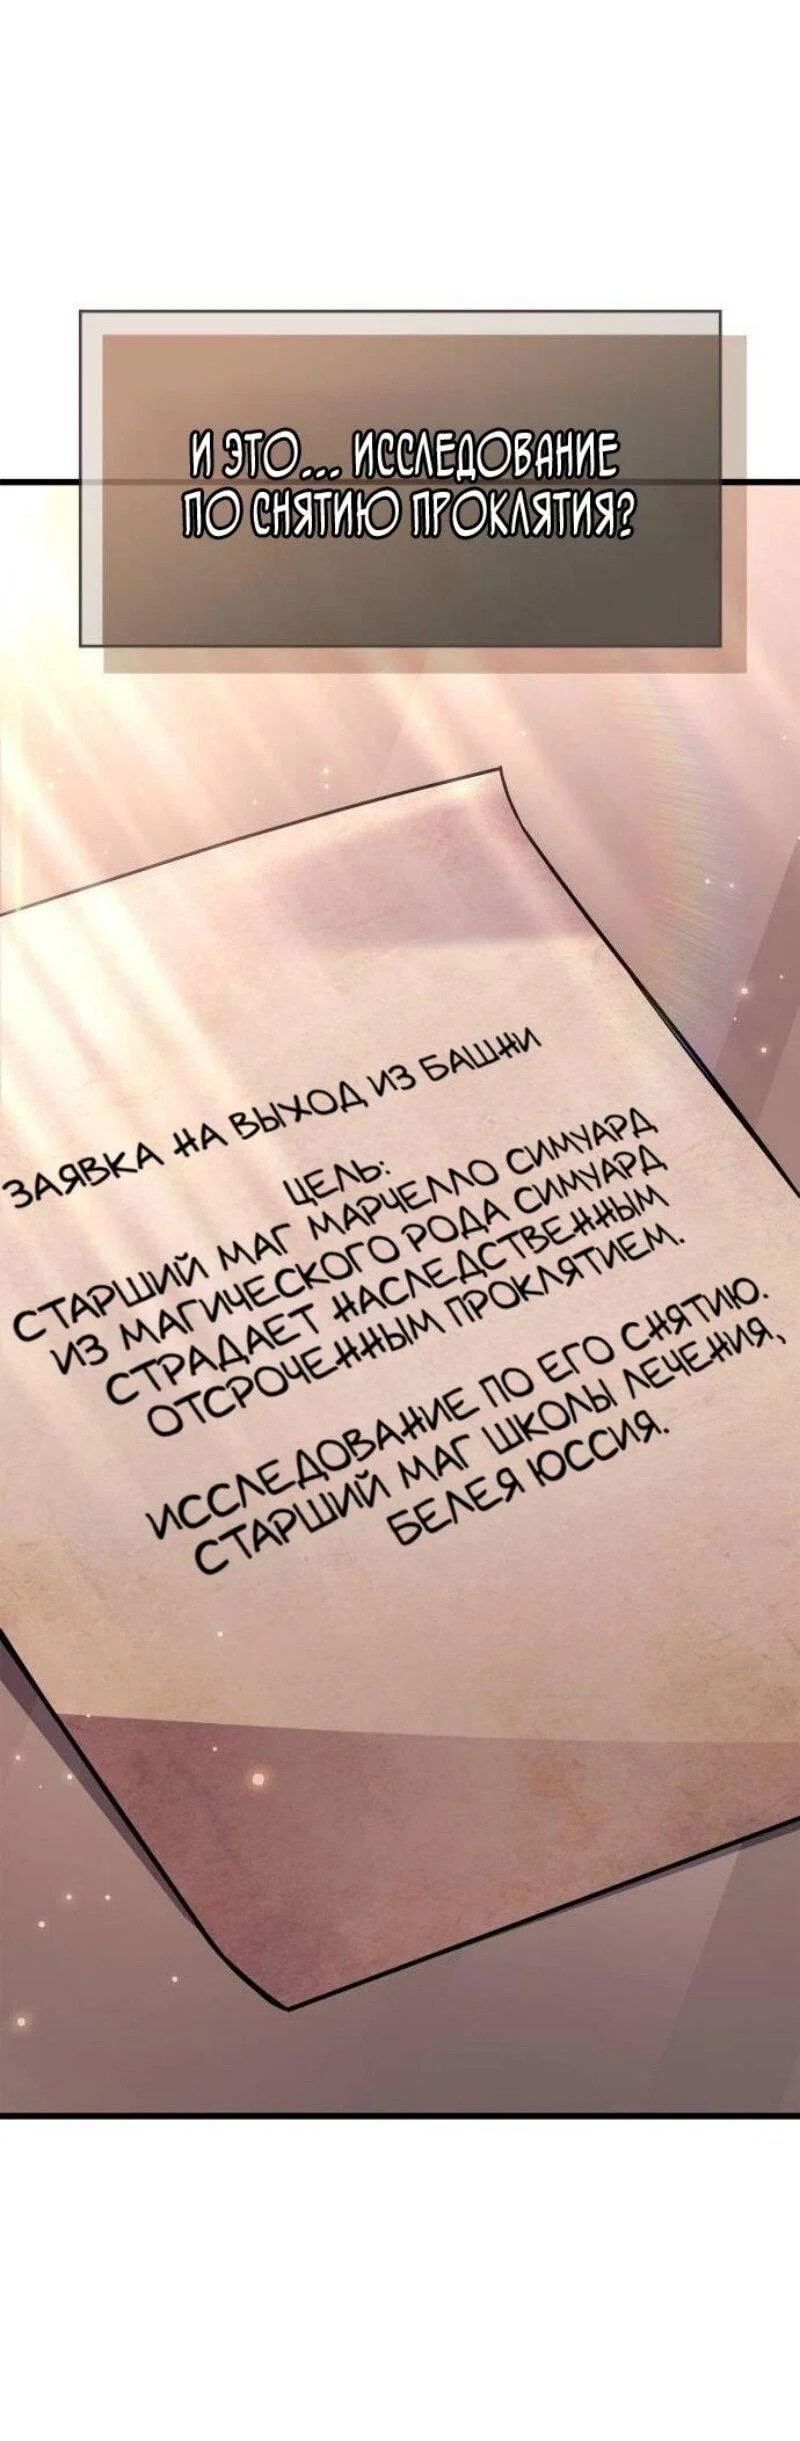 И ЭТО... ИССЛЕДОВАНИЕ
ПО СНЯТИЮ ПРОКЛЯТИЯ?
ЗАЯВКА НА ВЫХОД ИЗ БАШНИ
ЦЕЛЬ:
СТАРШИЙ МАГ МАРЧЕЛЛО СИМУАРД
ИЗ МАГИЧЕСКОГО РОДА СИМУАРД
СТРАДАЕТ НАСЛЕДСТВЕННЫМ
ОТСРОЧЕННЫМ ПРОКЛЯТИЕМ.
ИССЛЕДОВАНИЕ ПО ЕГО СНЯТИЮ.
СТАРШИЙ МАГ ШКОЛЫ ЛЕЧЕНИЯ,
БЕЛЕЯ ЮССИЯ.